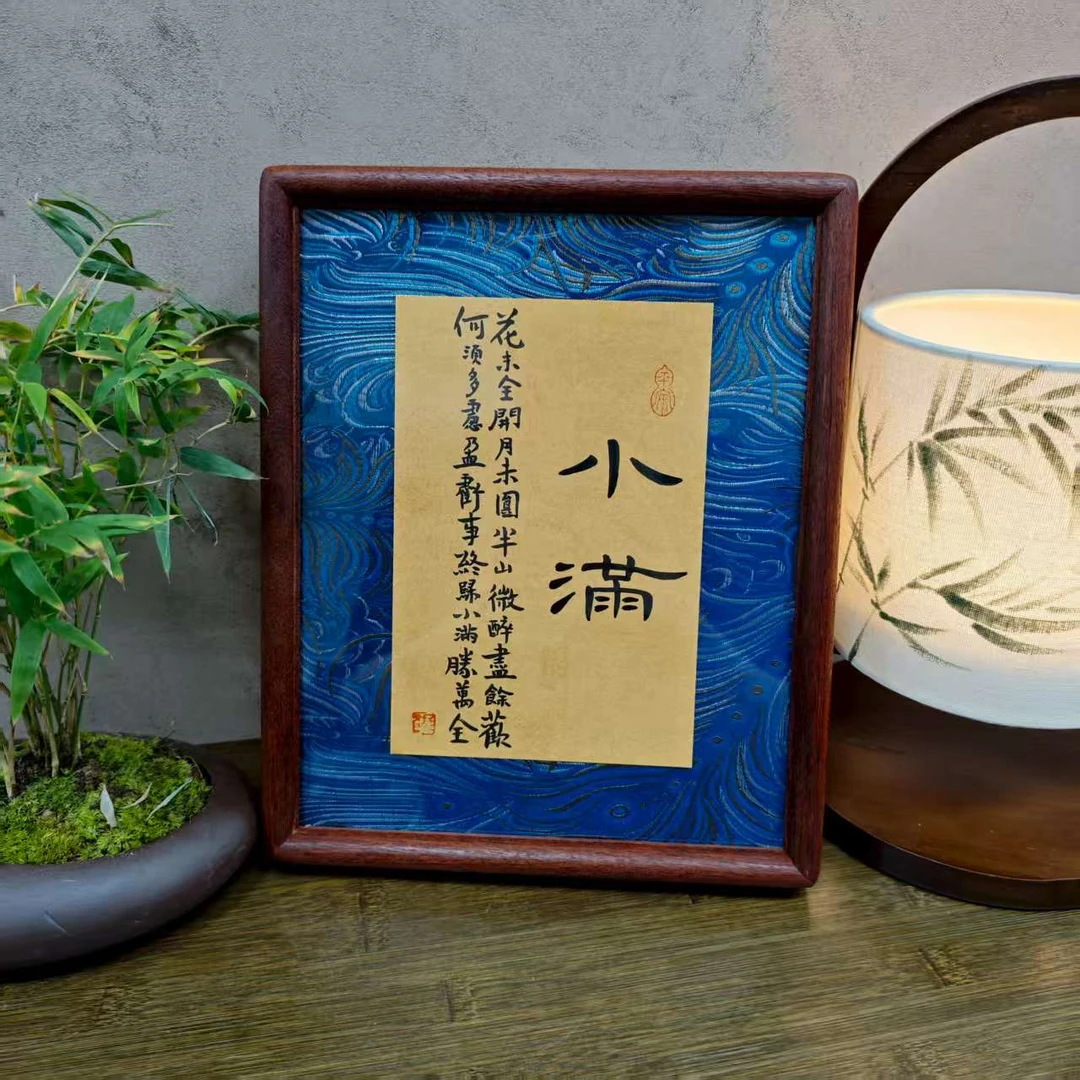 小滿
花未全開月未圓半山微醉盡餘歡
何須多慮盈虧事終歸小滿勝萬全